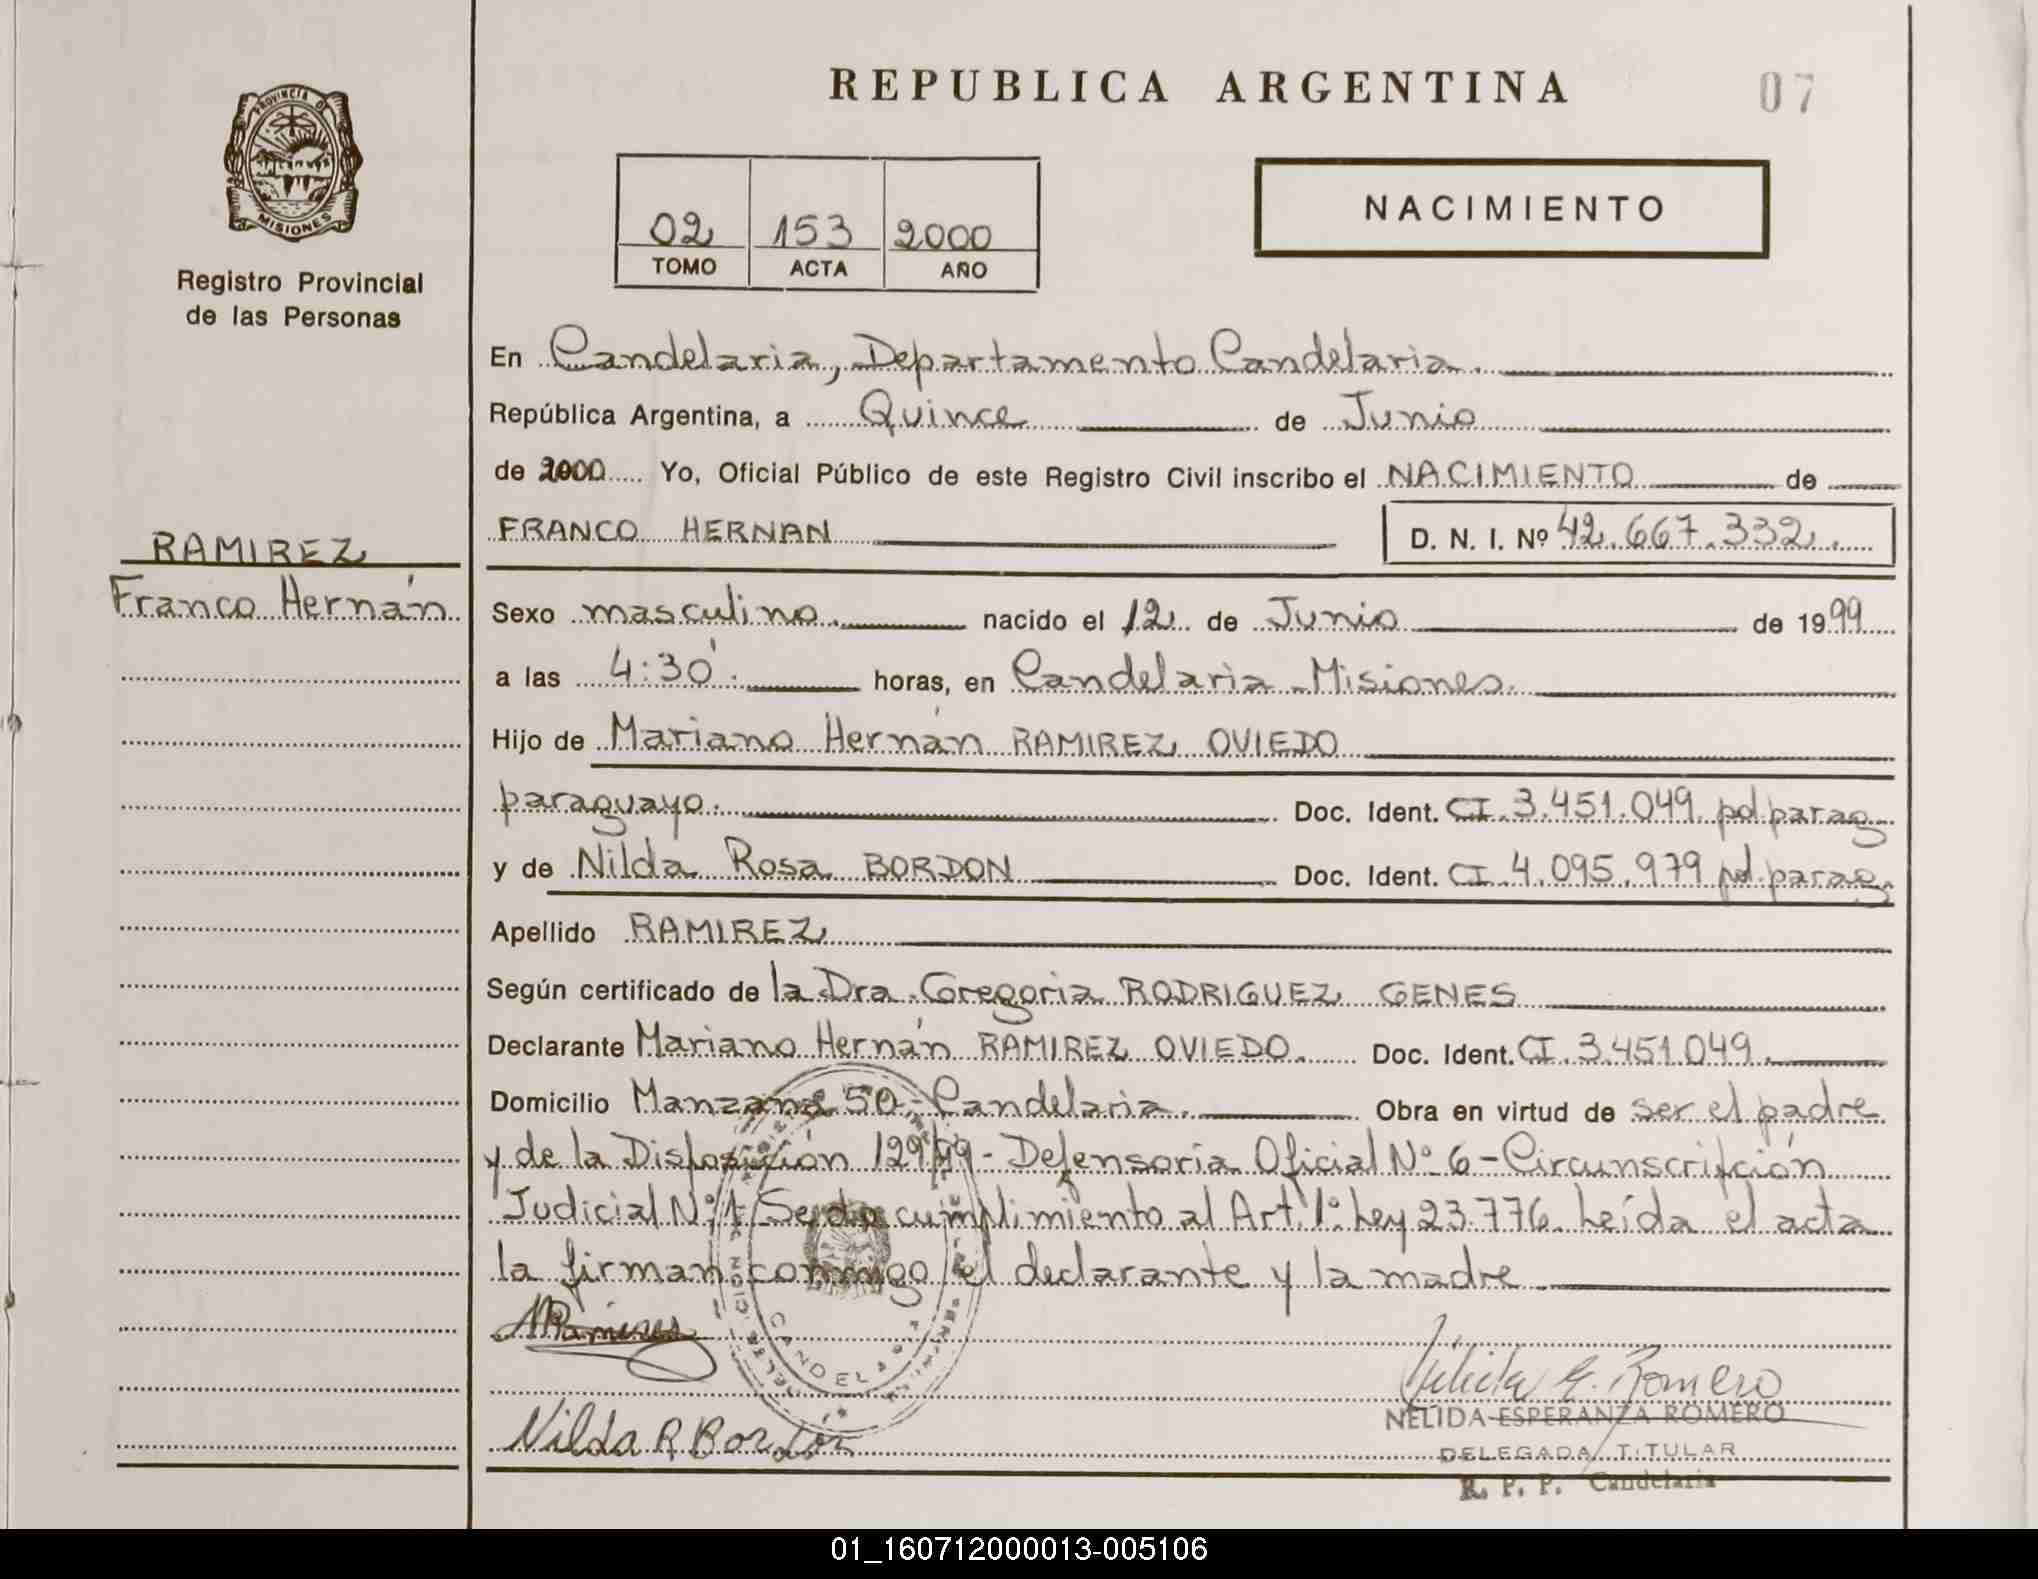 REPUBLICA ARGENTINA
07
PROVINCIA DE
MISIONES
Registro Provincial
de las Personas
02 153 2000
TOMO ACTA AÑO
NACIMIENTO
En Candelaria, Departamento Candelaria.
República Argentina, a Quince de Junio
de 2000 Yo, Oficial Público de este Registro Civil inscribo el NACIMIENTO de
FRANCO HERNAN D. N. I. Nº 42.667.332.
RAMIREZ
Franco Hernán
Sexo masculino. nacido el 12 de Junio de 1999
a las 4:30'. horas, en Candelaria - Misiones.
Hijo de Mariano Hernán RAMIREZ OVIEDO
paraguayo. Doc. Ident. CI. 3.451.049 pol parag
y de Nilda Rosa BORDON Doc. Ident. CI. 4.095.979 pol. parag.
Apellido RAMIREZ
Según certificado de la Dra. Gregoria RODRIGUEZ GENES
Declarante Mariano Hernán RAMIREZ OVIEDO. Doc. Ident. CI. 3.451.049.
Domicilio Manzana 50, Candelaria. Obra en virtud de ser el padre
y de la Disposición 129/99 - Defensoría Oficial Nº 6 - Circunscripción
Judicial Nº 1. Se dio cumplimiento al Art. 1º Ley 23.776. Leída el acta
la firman conmigo el declarante y la madre
MRamirez
CANDELARIA
Nélida E. Romero
NELIDA ESPERANZA ROMERO
Nilda R Bordon
DELEGADA TITULAR
R. P. P. Candelaria
01_160712000013-005106